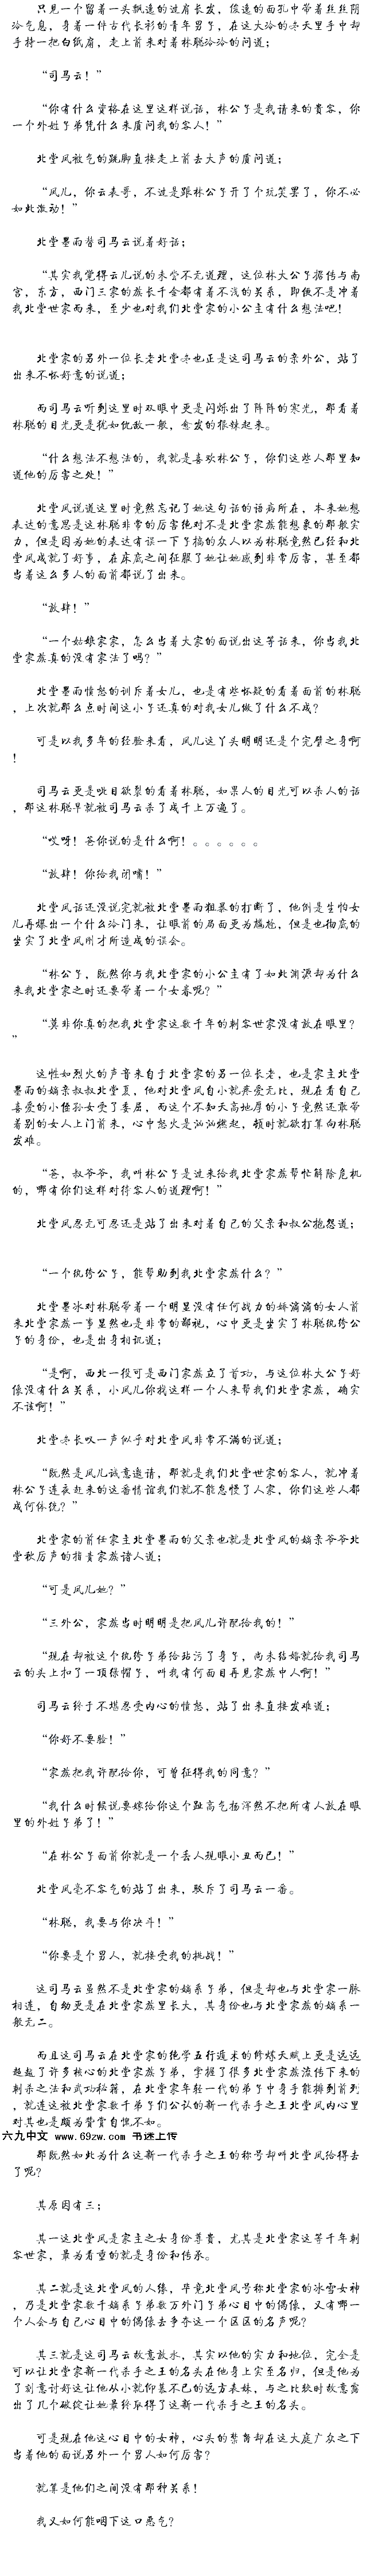 只见一个留着一头飘逸的过肩长发，俊逸的面孔中带着丝丝阴
冷气息，身着一件古代长衫的青年男子，在这大冷的冬天里手中却
手持一把白纸扇，走上前来对着林聪冷冷的问道；
“司马云！”
“你有什么资格在这里这样说话，林公子是我请来的贵客，你
一个外姓子弟凭什么来质问我的客人！”
北堂凤被气的跳脚直接走上前去大声的质问道；
“凤儿，你云表哥，不过是跟林公子开了个玩笑罢了，你不必
如此激动！”
北堂墨雨替司马云说着好话；
“其实我觉得云儿说的未尝不无道理，这位林大公子据传与南
宫，东方，西门三家的族长千金都有着不浅的关系，即便不是冲着
我北堂世家而来，至少也对我们北堂家的小公主有什么想法吧！
北堂家的另外一位长老北堂冬也正是这司马云的亲外公，站了
出来不怀好意的说道；
而司马云听到这里时双眼中更是闪烁出了阵阵的寒光，那看着
林聪的目光更是犹如仇敌一般，愈发的狠辣起来。
“什么想法不想法的，我就是喜欢林公子，你们这些人那里知
道他的厉害之处！”
北堂凤说道这里时竟然忘记了她这句话的语病所在，本来她想
表达的意思是这林聪非常的厉害绝对不是北堂家族能想象的那般实
力，但是因为她的表达有误一下子搞的众人以为林聪竟然已经和北
堂凤成就了好事，在床底之间征服了她让她感到非常厉害，甚至都
当着这么多人的面前都说了出来。
“放肆！”
“一个姑娘家家，怎么当着大家的面说出这等话来，你当我北
堂家族真的没有家法了吗？”
北堂墨雨愤怒的训斥着女儿，也是有些怀疑的看着面前的林聪
，上次就那么点时间这小子还真的对我女儿做了什么不成？
可是以我多年的经验来看，凤儿这丫头明明还是个完璧之身啊
！
司马云更是呲目欲裂的看着林聪，如果人的目光可以杀人的话
，那这林聪早就被司马云杀了成千上万遍了。
“哎呀！爸你说的是什么啊！。。。。。。
“放肆！你给我闭嘴！”
北堂凤话还没说完就被北堂墨雨粗暴的打断了，他倒是生怕女
儿再爆出一个什么冷门来，让眼前的局面更为尴尬，但是也彻底的
坐实了北堂凤刚才所造成的误会。
“林公子，既然你与我北堂家的小公主有了如此渊源却为什么
来我北堂家之时还要带着一个女眷呢？”
“莫非你真的把我北堂家这数千年的刺客世家没有放在眼里？
”
这性如烈火的声音来自于北堂家的另一位长老，也是家主北堂
墨雨的嫡亲叔叔北堂夏，他对北堂凤自小就疼爱无比，现在看自己
喜爱的小侄孙女受了委屈，而这个不知天高地厚的小子竟然还敢带
着别的女人上门前来，心中怒火是汹汹燃起，顿时就欲打算向林聪
发难。
“爸，叔爷爷，我叫林公子是过来给我北堂家族帮忙解除危机
的，哪有你们这样对待客人的道理啊！”
北堂凤忍无可忍还是站了出来对着自己的父亲和叔公抱怨道；
“一个纨绔公子，能帮助到我北堂家族什么？”
北堂墨冰对林聪带着一个明显没有任何战力的娇滴滴的女人前
来北堂家族一事显然也是非常的鄙视，心中更是坐实了林聪纨绔公
子的身份，也是出身相讥道；
“是啊，西北一役可是西门家族立了首功，与这位林大公子好
像没有什么关系，小凤儿你找这样一个人来帮我们北堂家族，确实
不该啊！”
北堂冬长叹一声似乎对北堂凤非常不满的说道；
“既然是凤儿诚意邀请，那就是我们北堂世家的客人，就冲着
林公子连夜赶来的这番情谊我们就不能怠慢了人家，你们这些人都
成何体统？”
北堂家的前任家主北堂墨雨的父亲也就是北堂凤的嫡亲爷爷北
堂秋厉声的指责家族诸人道；
“可是凤儿她？”
“三外公，家族当时明明是把凤儿许配给我的！”
“现在却被这个纨绔子弟给玷污了身子，尚未结婚就给我司马
云的头上扣了一顶绿帽子，叫我有何面目再见家族中人啊！”
司马云终于不堪忍受内心的愤怒，站了出来直接发难道；
“你好不要脸！”
“家族把我许配给你，可曾征得我的同意？”
“我什么时候说要嫁给你这个趾高气扬浑然不把所有人放在眼
里的外姓子弟了！”
“在林公子面前你就是一个丢人现眼小丑而已！”
北堂凤毫不客气的站了出来，驳斥了司马云一番。
“林聪，我要与你决斗！”
“你要是个男人，就接受我的挑战！”
这司马云虽然不是北堂家的嫡系子弟，但是却也与北堂家一脉
相连，自幼更是在北堂家族里长大，其身份也与北堂家族的嫡系一
般无二。
而且这司马云在北堂家的绝学五行遁术的修炼天赋上更是远远
超越了许多核心的北堂家族子弟，掌握了很多北堂家族流传下来的
刺杀之法和武功秘籍，在北堂家年轻一代的子弟中身手能排到前列
，就连这被北堂家数千弟子们公认的新一代杀手之王北堂凤内心里
对其也是颇为赞赏自愧不如。
六九中文 www.69zw.com 书迷上传
那既然如此为什么这新一代杀手之王的称号却叫北堂凤给得去
了呢？
其原因有三；
其一这北堂凤是家主之女身份尊贵，尤其是北堂家这等千年刺
客世家，最为看重的就是身份和传承。
其二就是这北堂凤的人缘，毕竟北堂凤号称北堂家的冰雪女神
，乃是北堂家数千嫡系子弟数万外门子弟心目中的偶像，又有哪一
个人会与自己心目中的偶像去争夺这一个区区的名声呢？
其三就是这司马云故意放水，其实以他的实力和地位，完全是
可以让北堂家新一代杀手之王的名头在他身上实至名归，但是他为
了刻意讨好这让他从小就仰慕不已的远方表妹，与之比较时故意露
出了几个破绽让她最终取得了这新一代杀手之王的名头。
可是现在他这心目中的女神，心头的禁脔却在这大庭广众之下
当着他的面说另外一个男人如何厉害？
就算是他们之间没有那种关系！
我又如何能咽下这口恶气？